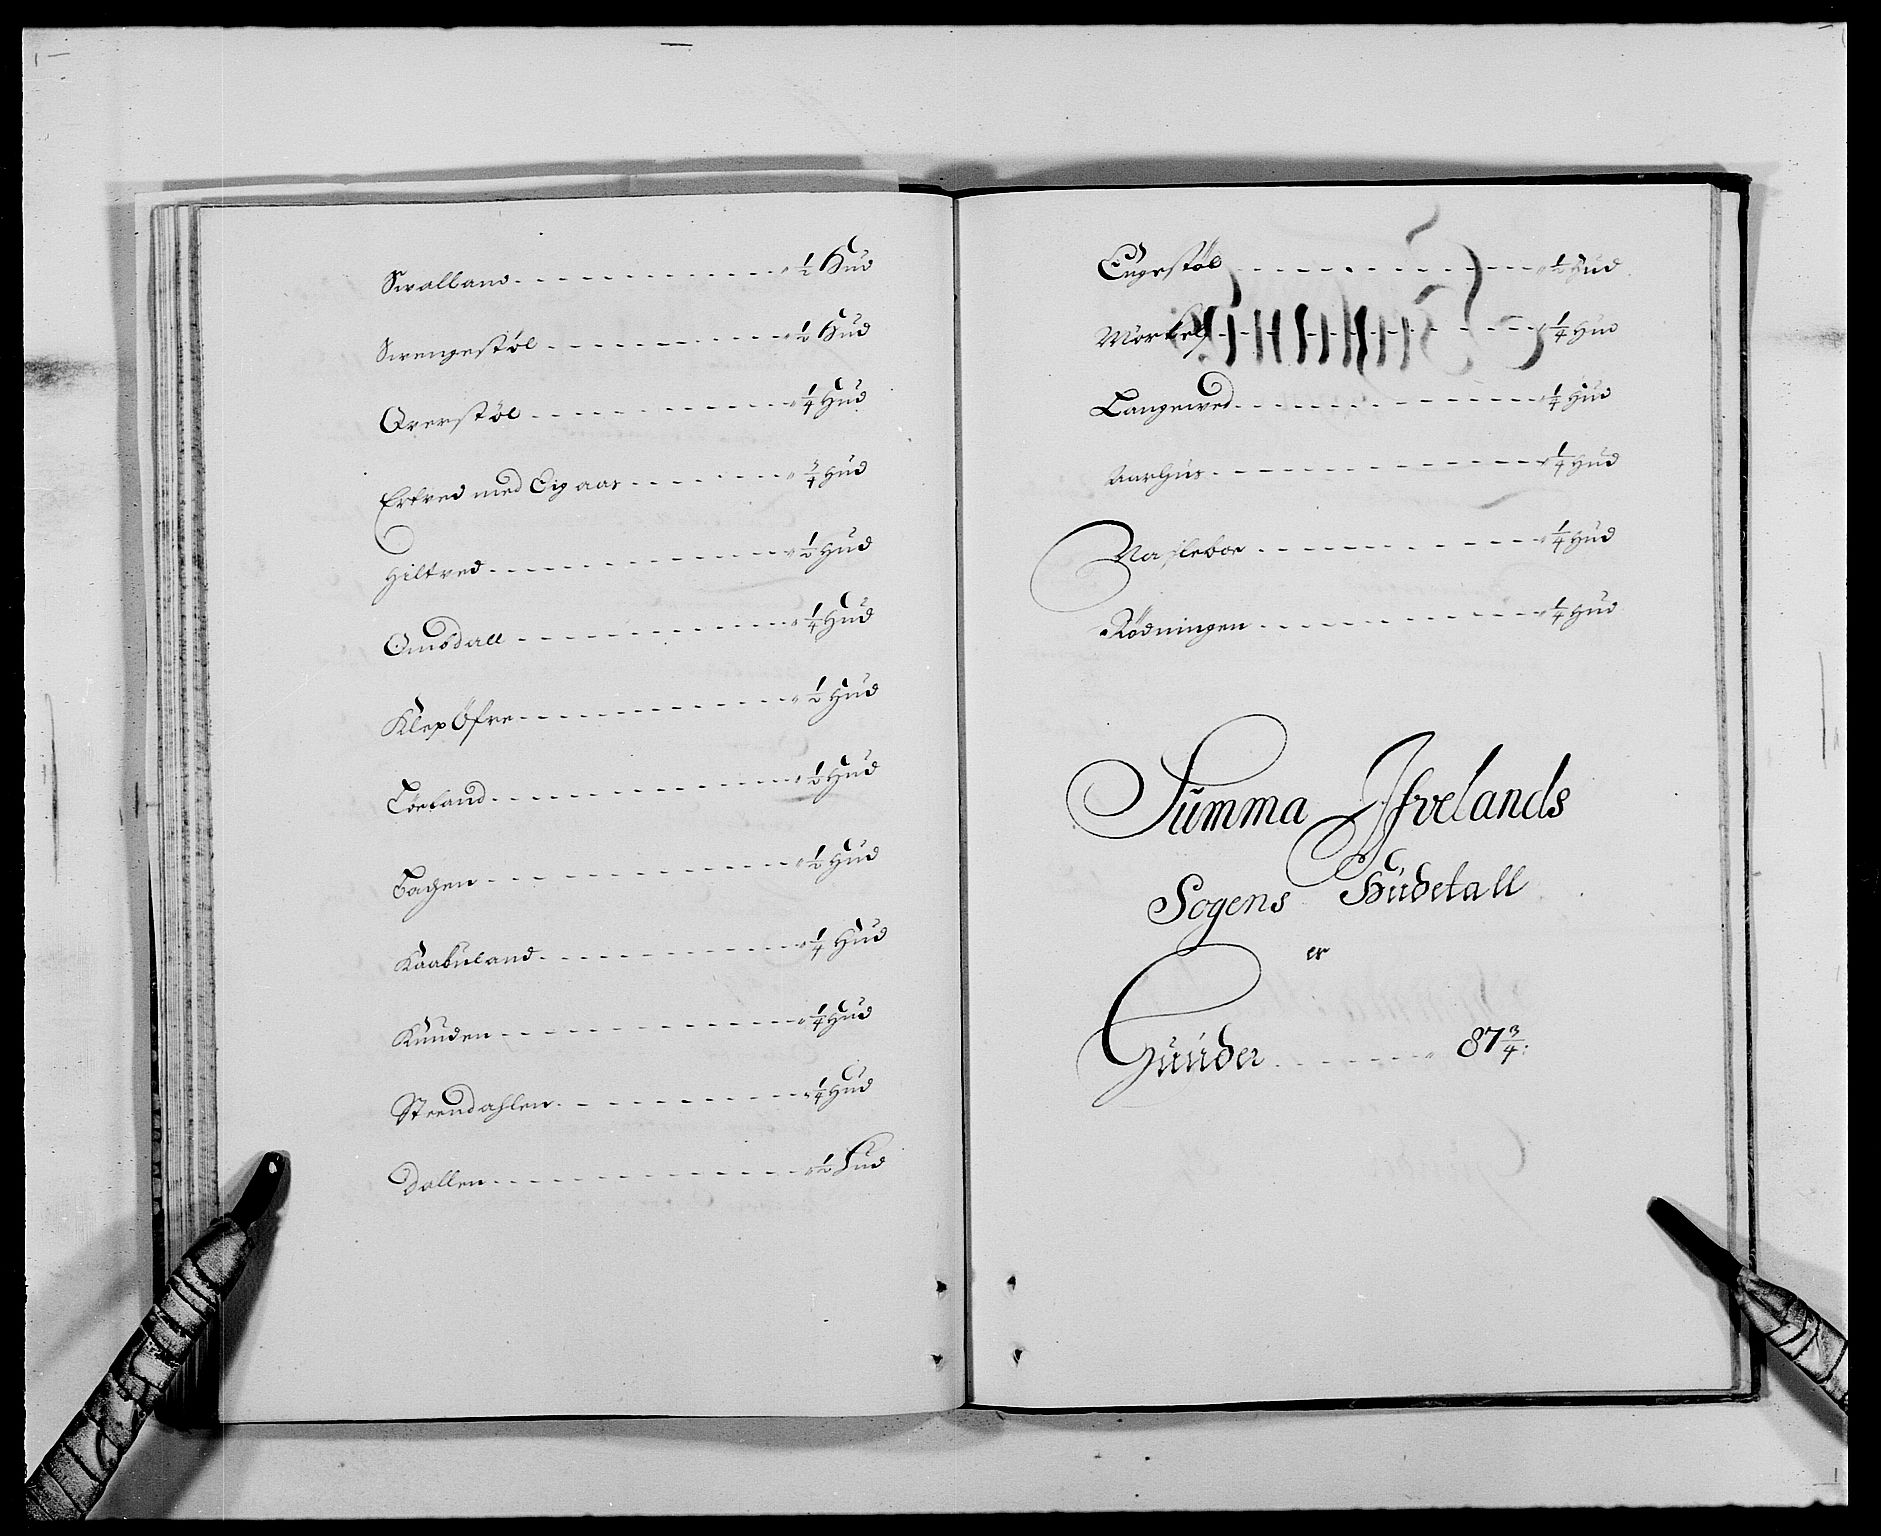 Swalland - - - - - - - - - - - ½ Hud
Swengestøl - - - - - - - - - - ½ Hud
Qverstøl - - - - - - - - - - ¼ Hud
Ertved med Eigaas - - - - - - ¾ Hud
Hiltved - - - - - - - - - - - ½ Hud
Omdall - - - - - - - - - - ¼ Hud
Klep Øfre - - - - - - - - - - ½ Hud
Lörland - - - - - - - - - - - ½ Hud
Bachen - - - - - - - - - - - ½ Hud
Kaabuland - - - - - - - - - ¼ Hud
Kunden - - - - - - - - - - - ¼ Hud
Steendahlen - - - - - - - - - ¼ Hud
Dallen - - - - - - - - - - - ½ Hud
Engestøl - - - - - - - - - - - ½ Hud
Morkelf - - - - - - - - - - ¼ Hud
Langewed - - - - - - - - - - ¼ Hud
Aarhus - - - - - - - - - - - ¼ Hud
Nasleboe - - - - - - - - - - ¼ Hud
Rödningen - - - - - - - - - - ¼ Hud
Summa Ifvelands
Sogens Hudetall
er
Huuder - - - - - - 87¾: